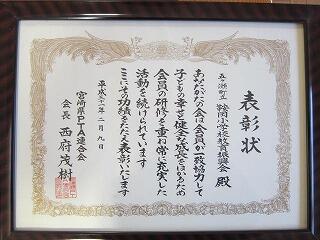 表彰状
五ヶ瀬町立
鞍岡小学校教育振興会 殿
あなたがたの会は会員が一致協力して
子どもの幸せと健全な成長をはかるため
会員の研修を重ね常に充実した
活動を続けられています
ここにその功績をたたえ表彰いたします
平成二十一年二月九日
宮崎県PTA連合会
会長 西府茂樹